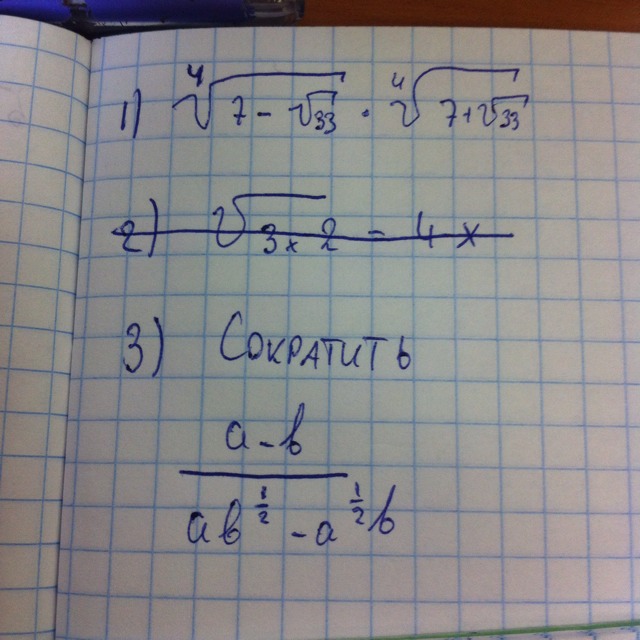 1) ⁴√(7 - √33) · ⁴√(7 + √33)
2) √(3x 2) = 4x
3) Сократить
a - b
ab^(1/2) - a^(1/2)b